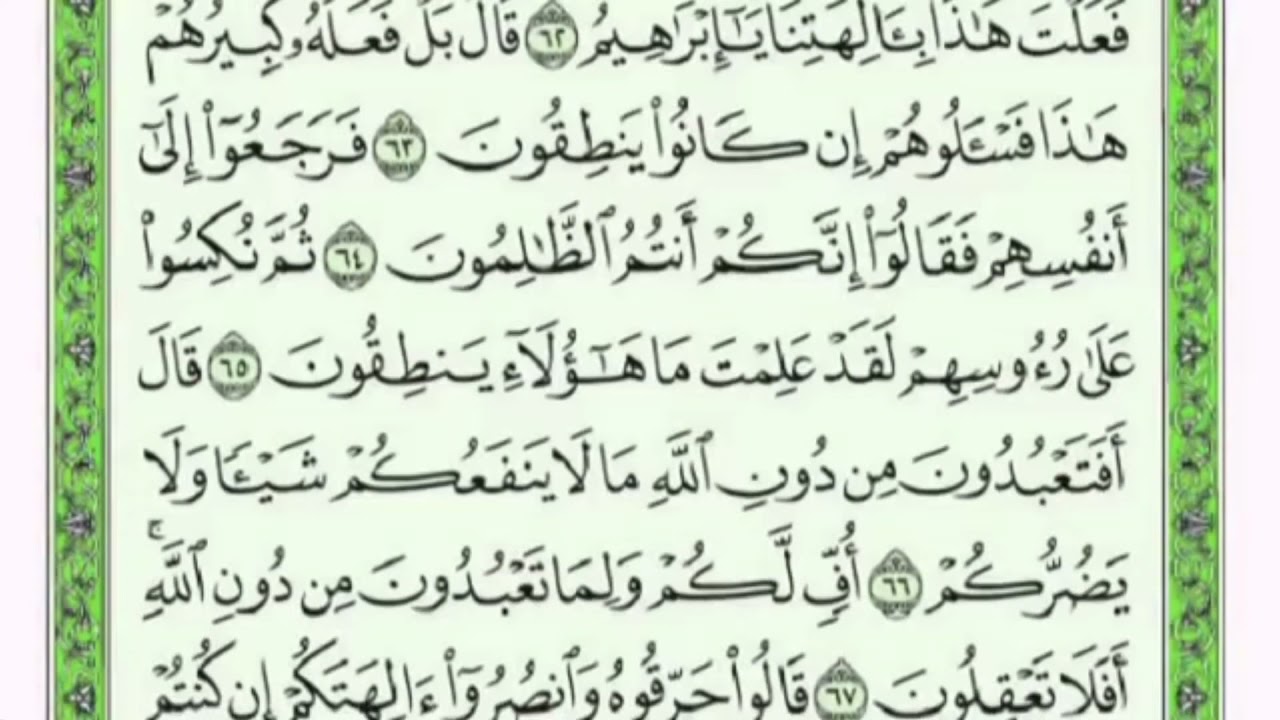 فَعَلْتَ هَٰذَا بِـَٔالِهَتِنَا يَٰٓإِبْرَٰهِيمُ ٦٢ قَالَ بَلْ فَعَلَهُۥ كَبِيرُهُمْ
هَٰذَا فَسْـَٔلُوهُمْ إِن كَانُوا۟ يَنطِقُونَ ٦٣ فَرَجَعُوٓا۟ إِلَىٰٓ
أَنفُسِهِمْ فَقَالُوٓا۟ إِنَّكُمْ أَنتُمُ ٱلظَّٰلِمُونَ ٦٤ ثُمَّ نُكِسُوا۟
عَلَىٰ رُءُوسِهِمْ لَقَدْ عَلِمْتَ مَا هَٰٓؤُلَآءِ يَنطِقُونَ ٦٥ قَالَ
أَفَتَعْبُدُونَ مِن دُونِ ٱللَّهِ مَا لَا يَنفَعُكُمْ شَيْـًٔا وَلَا
يَضُرُّكُمْ ٦٦ أُفٍّ لَّكُمْ وَلِمَا تَعْبُدُونَ مِن دُونِ ٱللَّهِ ۚ
أَفَلَا تَعْقِلُونَ ٦٧ قَالُوا۟ حَرِّقُوهُ وَٱنصُرُوٓا۟ ءَالِهَتَكُمْ إِن كُنتُمْ